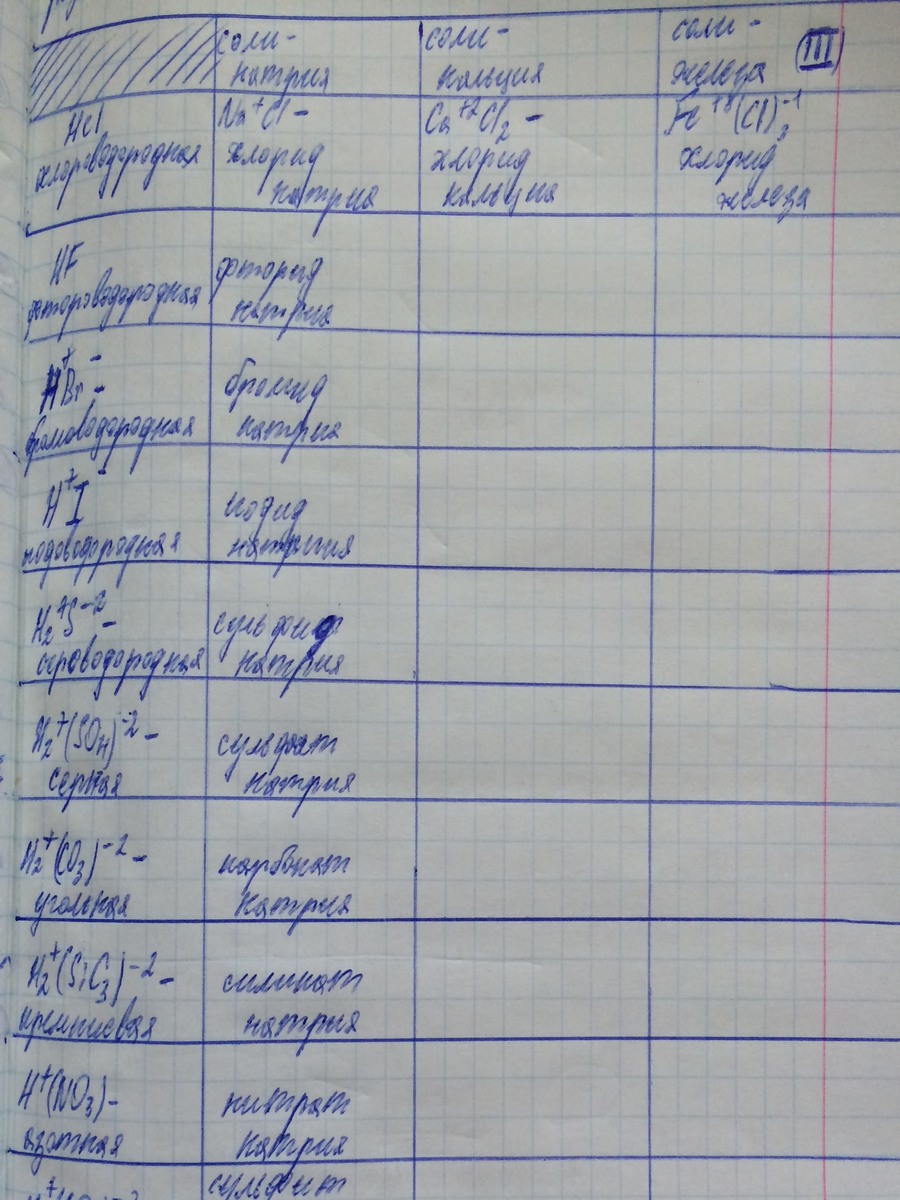 соли-
натрия
соли-
кальция
соли-
железа
III
HCl
хлороводородная
Na⁺Cl-
хлорид
натрия
Ca⁺²Cl₂ -
хлорид
кальция
(Cl)₃⁻¹
хлорид
железа
HF
фтороводородная
фторид
натрия
H⁺Br⁻ -
бромоводородная
бромид
натрия
H⁺I⁻
иодоводородная
иодид
натрия
H₂⁺S⁻² -
сероводородная
сульфид
натрия
H₂⁺(SO₄)⁻² -
серная
сульфат
натрия
H₂⁺(CO₃)⁻² -
угольная
карбонат
натрия
H₂⁺(SiO₃)⁻² -
кремниевая
силикат
натрия
H⁺(NO₃)-
азотная
нитрат
натрия
сульфит